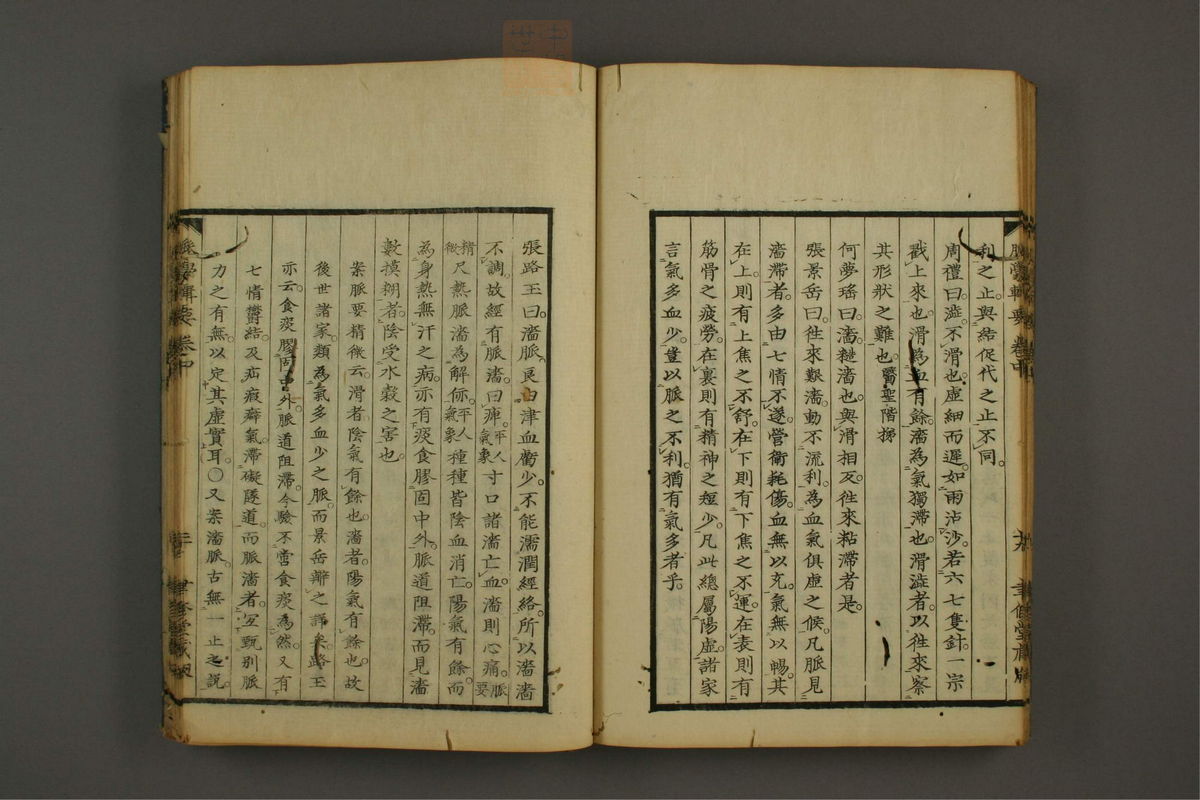 利之止與結促代之止不同
周禮曰澁不滑也虛細而遲如雨沾沙若六七隻針一宗
戳上來也滑為血有餘濇為氣獨滯也滑澁者以往來察
其形狀之難也醫聖階梯
何夢瑤曰濇糙濇也與滑相反往來粘滯者是
張景岳曰往來艱濇動不流利為血氣俱虛之候凡脈見
濇滯者多由七情不遂營衞耗傷血無以充氣無以暢其
在上則有上焦之不舒在下則有下焦之不運在表則有
筋骨之疲勞在裏則有精神之短少凡此總屬陽虛諸家
言氣多血少豈以脈之不利猶有氣多者乎
張路玉曰濇脈良由津血虧少不能濡潤經絡所以濇濇
不調故經有脈濇曰痹平人氣象寸口諸濇亡血濇則心痛脈要
精微尺熱脈濇為解㑊平人氣象種種皆陰血消亡陽氣有餘而
為身熱無汗之病亦有痰食膠固中外脈道阻滯而見濇
數摸糊者陰受水穀之害也
案脈要精微云滑者陰氣有餘也濇者陽氣有餘也故
後世諸家類為氣多血少之脈而景岳辨之詳矣路玉
亦云食痰膠固中外脈道阻滯今驗不啻食痰為然又有
七情鬱結及疝瘕癖氣滯礙隧道而脈濇者宜甄別脈
力之有無以定其虛實耳○又案濇脈古無一止之說
脈學輯要 卷中
聿修堂藏版
脈學輯要 卷中
聿修堂藏版